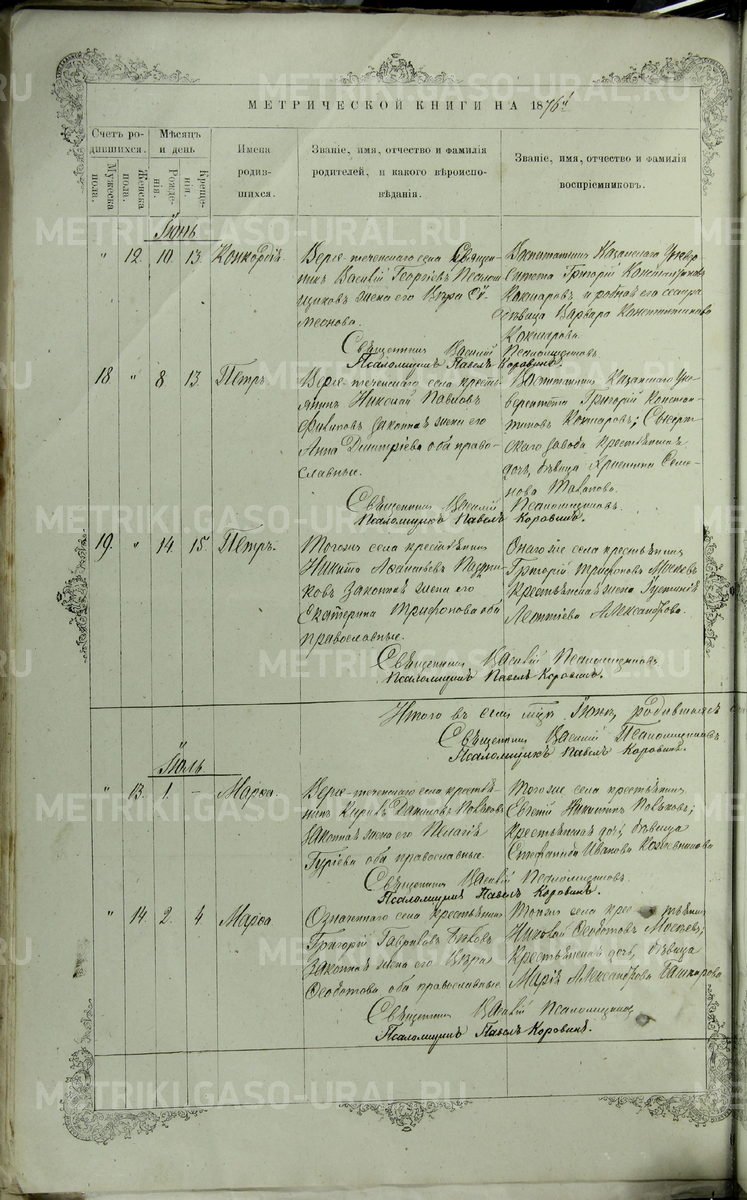 МЕТРИЧЕСКОЙ КНИГИ НА 1876й
Счетъ ро-
дившихся.
Мужеска
пола.
Женска
пола.
Мѣсяцъ
и день
Рожде-
нія.
Креще-
нія.
Имена
родив-
шихся.
Званіе, имя, отчество и фамилія
родителей, и какого вѣроиспо-
вѣданія.
Званіе, имя, отчество и фамилія
воспріемниковъ.
Іюнь
" 12. 10. 13. Конкордія.
Верхъ-теченскаго села Священ-
никъ Василій Георгіевъ
жена его Вѣра Си-
меонова.
Воспитанникъ Казанскаго Универ-
ситета Григорій Константиновъ
Кокшаровъ и родная его сестра
дѣвица Варвара Константинова
Кокшарова.
Священникъ Василій Псаломщиковъ
Псаломщикъ Павелъ Коровинъ.
18 " 8 13. Петръ.
Верхъ-теченскаго села кресть-
янинъ Николай Павловъ
Филиповъ законная жена его
Анна Димитріева оба право-
славные.
Воспитанникъ Казанскаго Уни-
верситета Григорій Констан-
тиновъ Кокшаровъ; Сысерт-
скаго завода крестьянская
дочь, дѣвица Семе-
нова
Священникъ Василій Псаломщиковъ.
Псаломщикъ Павелъ Коровинъ.
19. " 14. 15. Петръ.
Тогожъ села крестьянинъ
Никита
законная жена его
Екатерина Трифонова оба
православные.
Онагоже села крестьянинъ
Григорій Трифоновъ
крестьянская жена
Леонтіева Александрова.
Священникъ Василій Псаломщиковъ.
Псаломщикъ Павелъ Коровинъ.
Итого въ семъ Іюнѣ родившихся
Священникъ Василій Псаломщиковъ
Псаломщикъ Павелъ Коровинъ.
Іюль
" 13. 1. – Марѳа.
Верхъ-теченскаго села крестья-
нинъ
законная жена его Пелагія
Гуріева оба православные.
Тогоже села крестьянинъ
Евгеній Никитинъ
крестьянская дочь, дѣвица
Стефанида Иванова Кожевникова
Священникъ Василій Псаломщиковъ.
Псаломщикъ Павелъ Коровинъ.
" 14. 2. 4. Марѳа.
Означеннаго села крестьянинъ
Григорій Гавриловъ
законная жена его Вѣра
Ѳедотова оба православные.
Тогожъ села крестьянинъ
Николай Ѳедотовъ
крестьянская дочь, дѣвица
Марія Александрова Башкирова
Священникъ Василій Псаломщиковъ
Псаломщикъ Павелъ Коровинъ.
METRIKI.GASO-URAL.RU